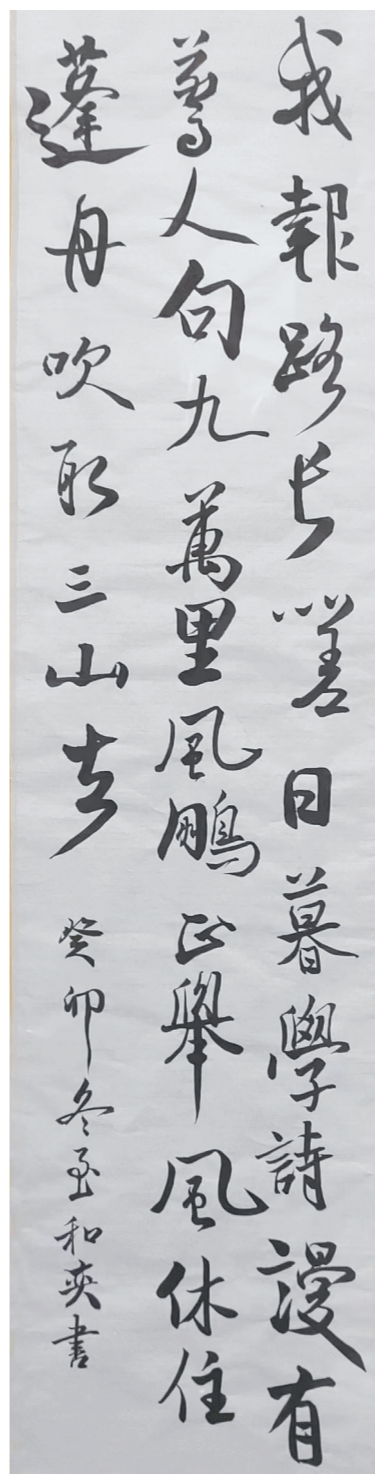 我報路長嗟日暮學詩謾有
驚人句九萬里風鵬正舉風休住
蓬舟吹取三山去
癸卯冬至和奕書